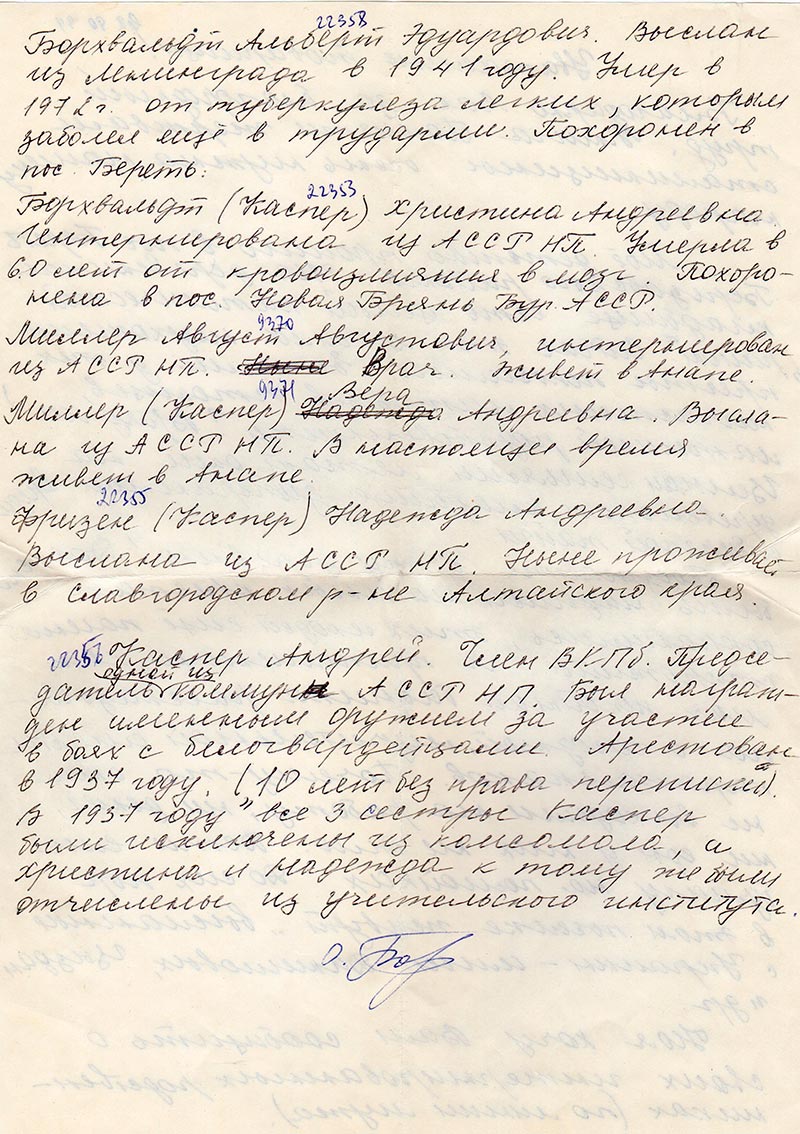 22358
Борхвальдт Альберт Эдуардович. Выслан
из Ленинграда в 1941 году. Умер в
1972 г. от туберкулеза легких, которым
заболел ещё в трудармии. Похоронен в
пос. Береть.
22353
Борхвальдт (Каспер) Христина Андреевна
Интернирована из АССР НП. Умерла в
60 лет от кровоизлияния в мозг. Похоро-
нена в пос. Новая Брянь Бур. АССР.
9370
Миллер Август Августович, интернирован
из АССР НП. Ныне Врач. Живет в Анапе.
9371 Вера
Миллер (Каспер) Надежда Андреевна. Высла-
на из АССР НП. В настоящее время
живет в Анапе.
22355
Фризен (Каспер) Надежда Андреевна.
Выслана из АССР НП. Ныне проживает
в Славгородском р-не Алтайского края.
22356 Каспер Андрей. Член ВКПб. Предсе-
одной из
датель коммун АССР НП. Был награж-
ден именным оружием за участие
в боях с белогвардейцами. Арестован
в 1937 году. (10 лет без права переписки).
В 1937 году все 3 сестры Каспер
были исключены из комсомола, а
Христина и Надежда к тому же были
отчислены из учительского института.
О. Бор